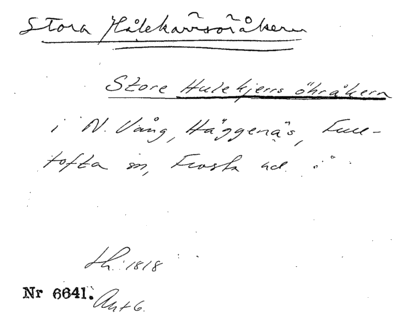 Stora Hålekärrsöråkern
Store Hulekjerrs öhråkern
i N. Vång, Häggenäs, Fule-
tofta sn, Frosta hd.
Nr 6641.